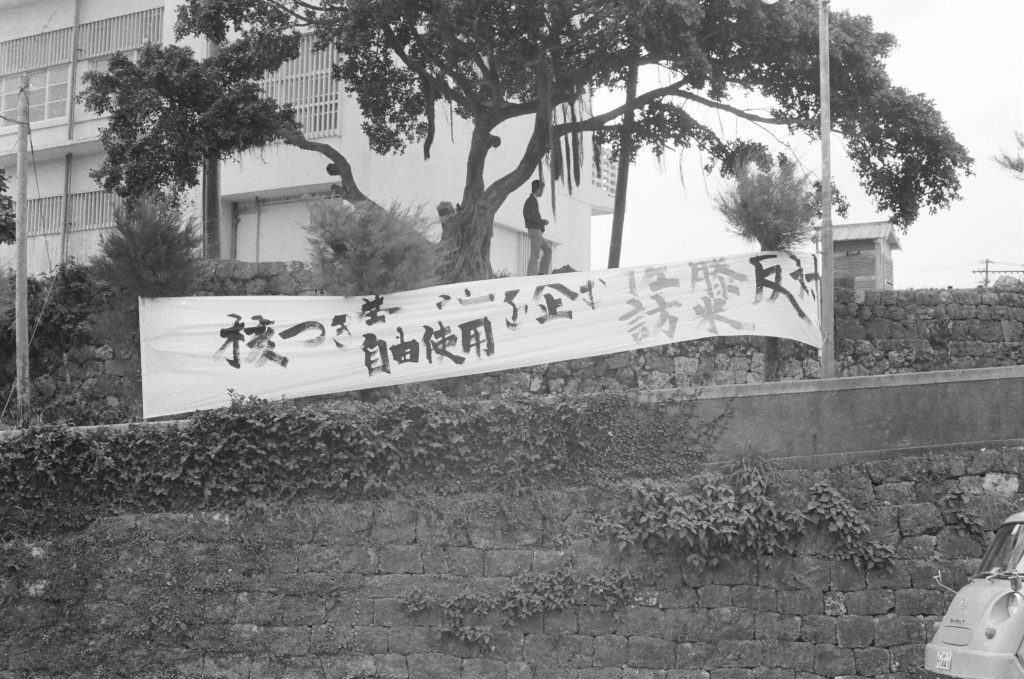 核つき
自由使用
を企む
佐藤
訪米
反対